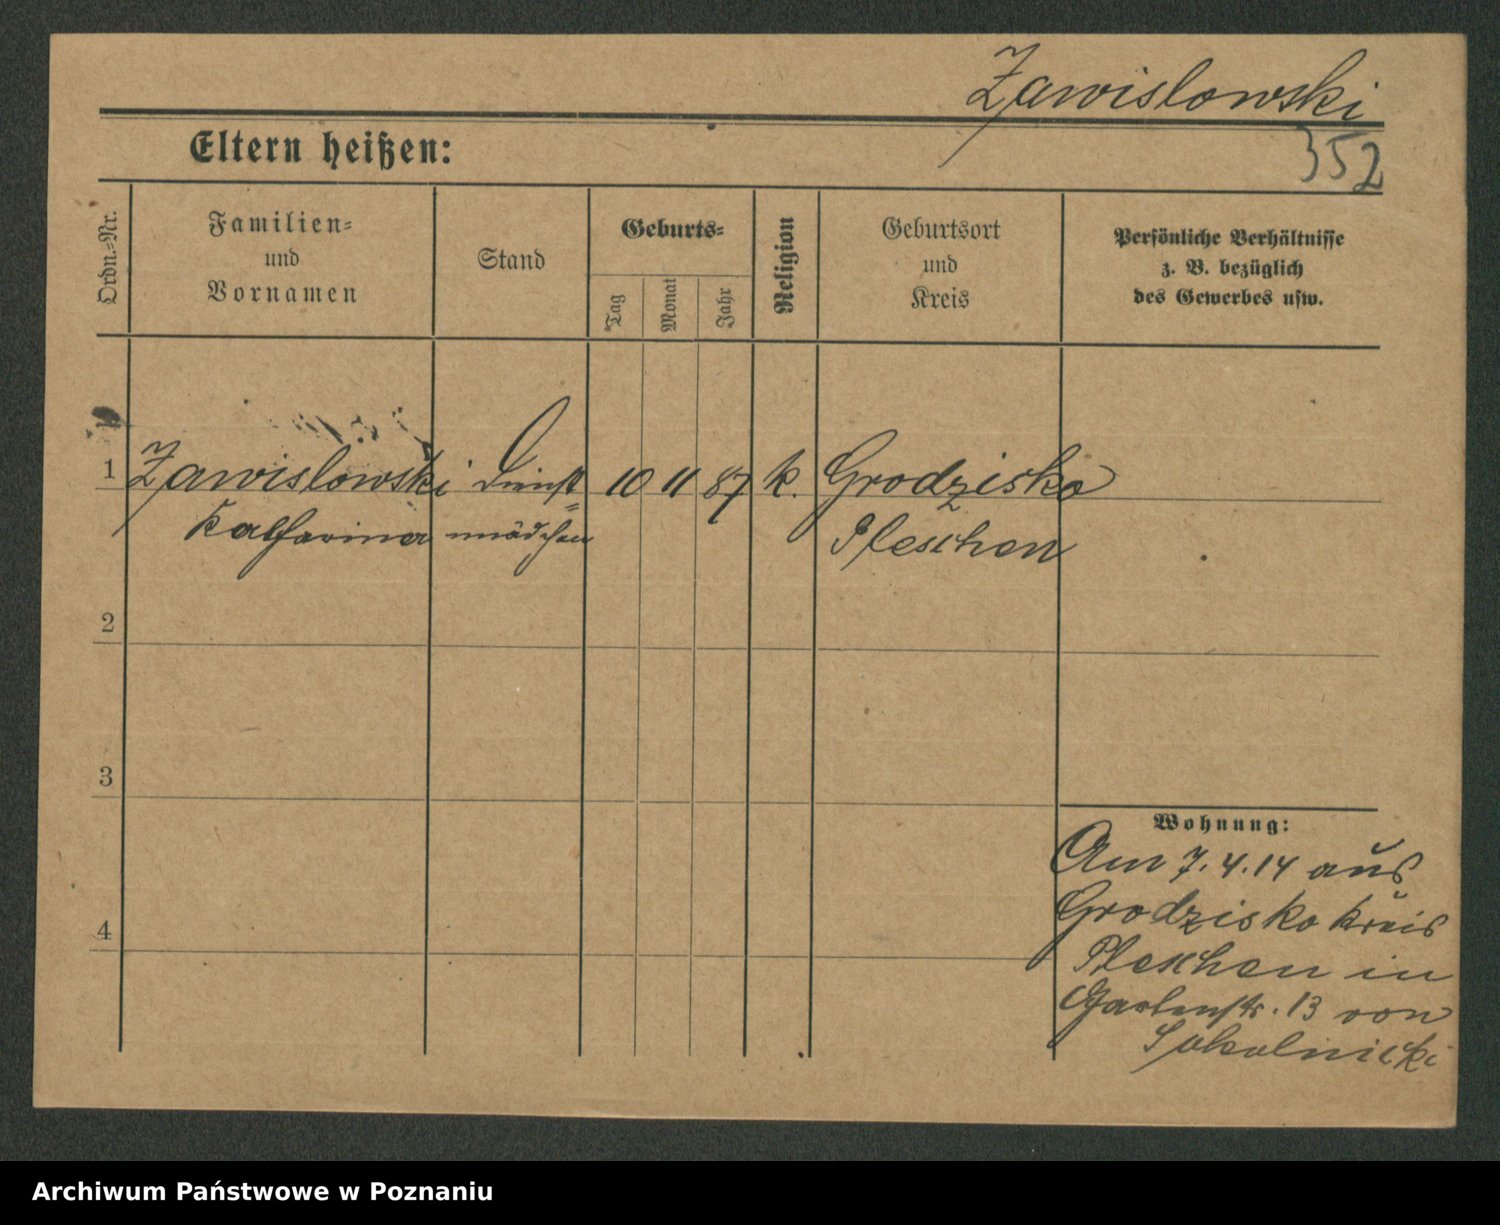 Zawislowski
Eltern heißen:
352
Ordn.-Nr.
Familien-
und
Vornamen
Stand
Geburts-
Tag
Monat
Jahr
Religion
Geburtsort
und
Kreis
Persönliche Verhältnisse
z. B. bezüglich
des Gewerbes usw.
1 Zawislowski Dienst= 10 11 87 k. Grodzisko
Katharina mädchen Pleschen
2
3
Wohnung:
Am 7.4.14 aus
Grodzisko Kreis
4
Pleschen in
Gartenstr. 13 von
Sokolnicki
Archiwum Państwowe w Poznaniu